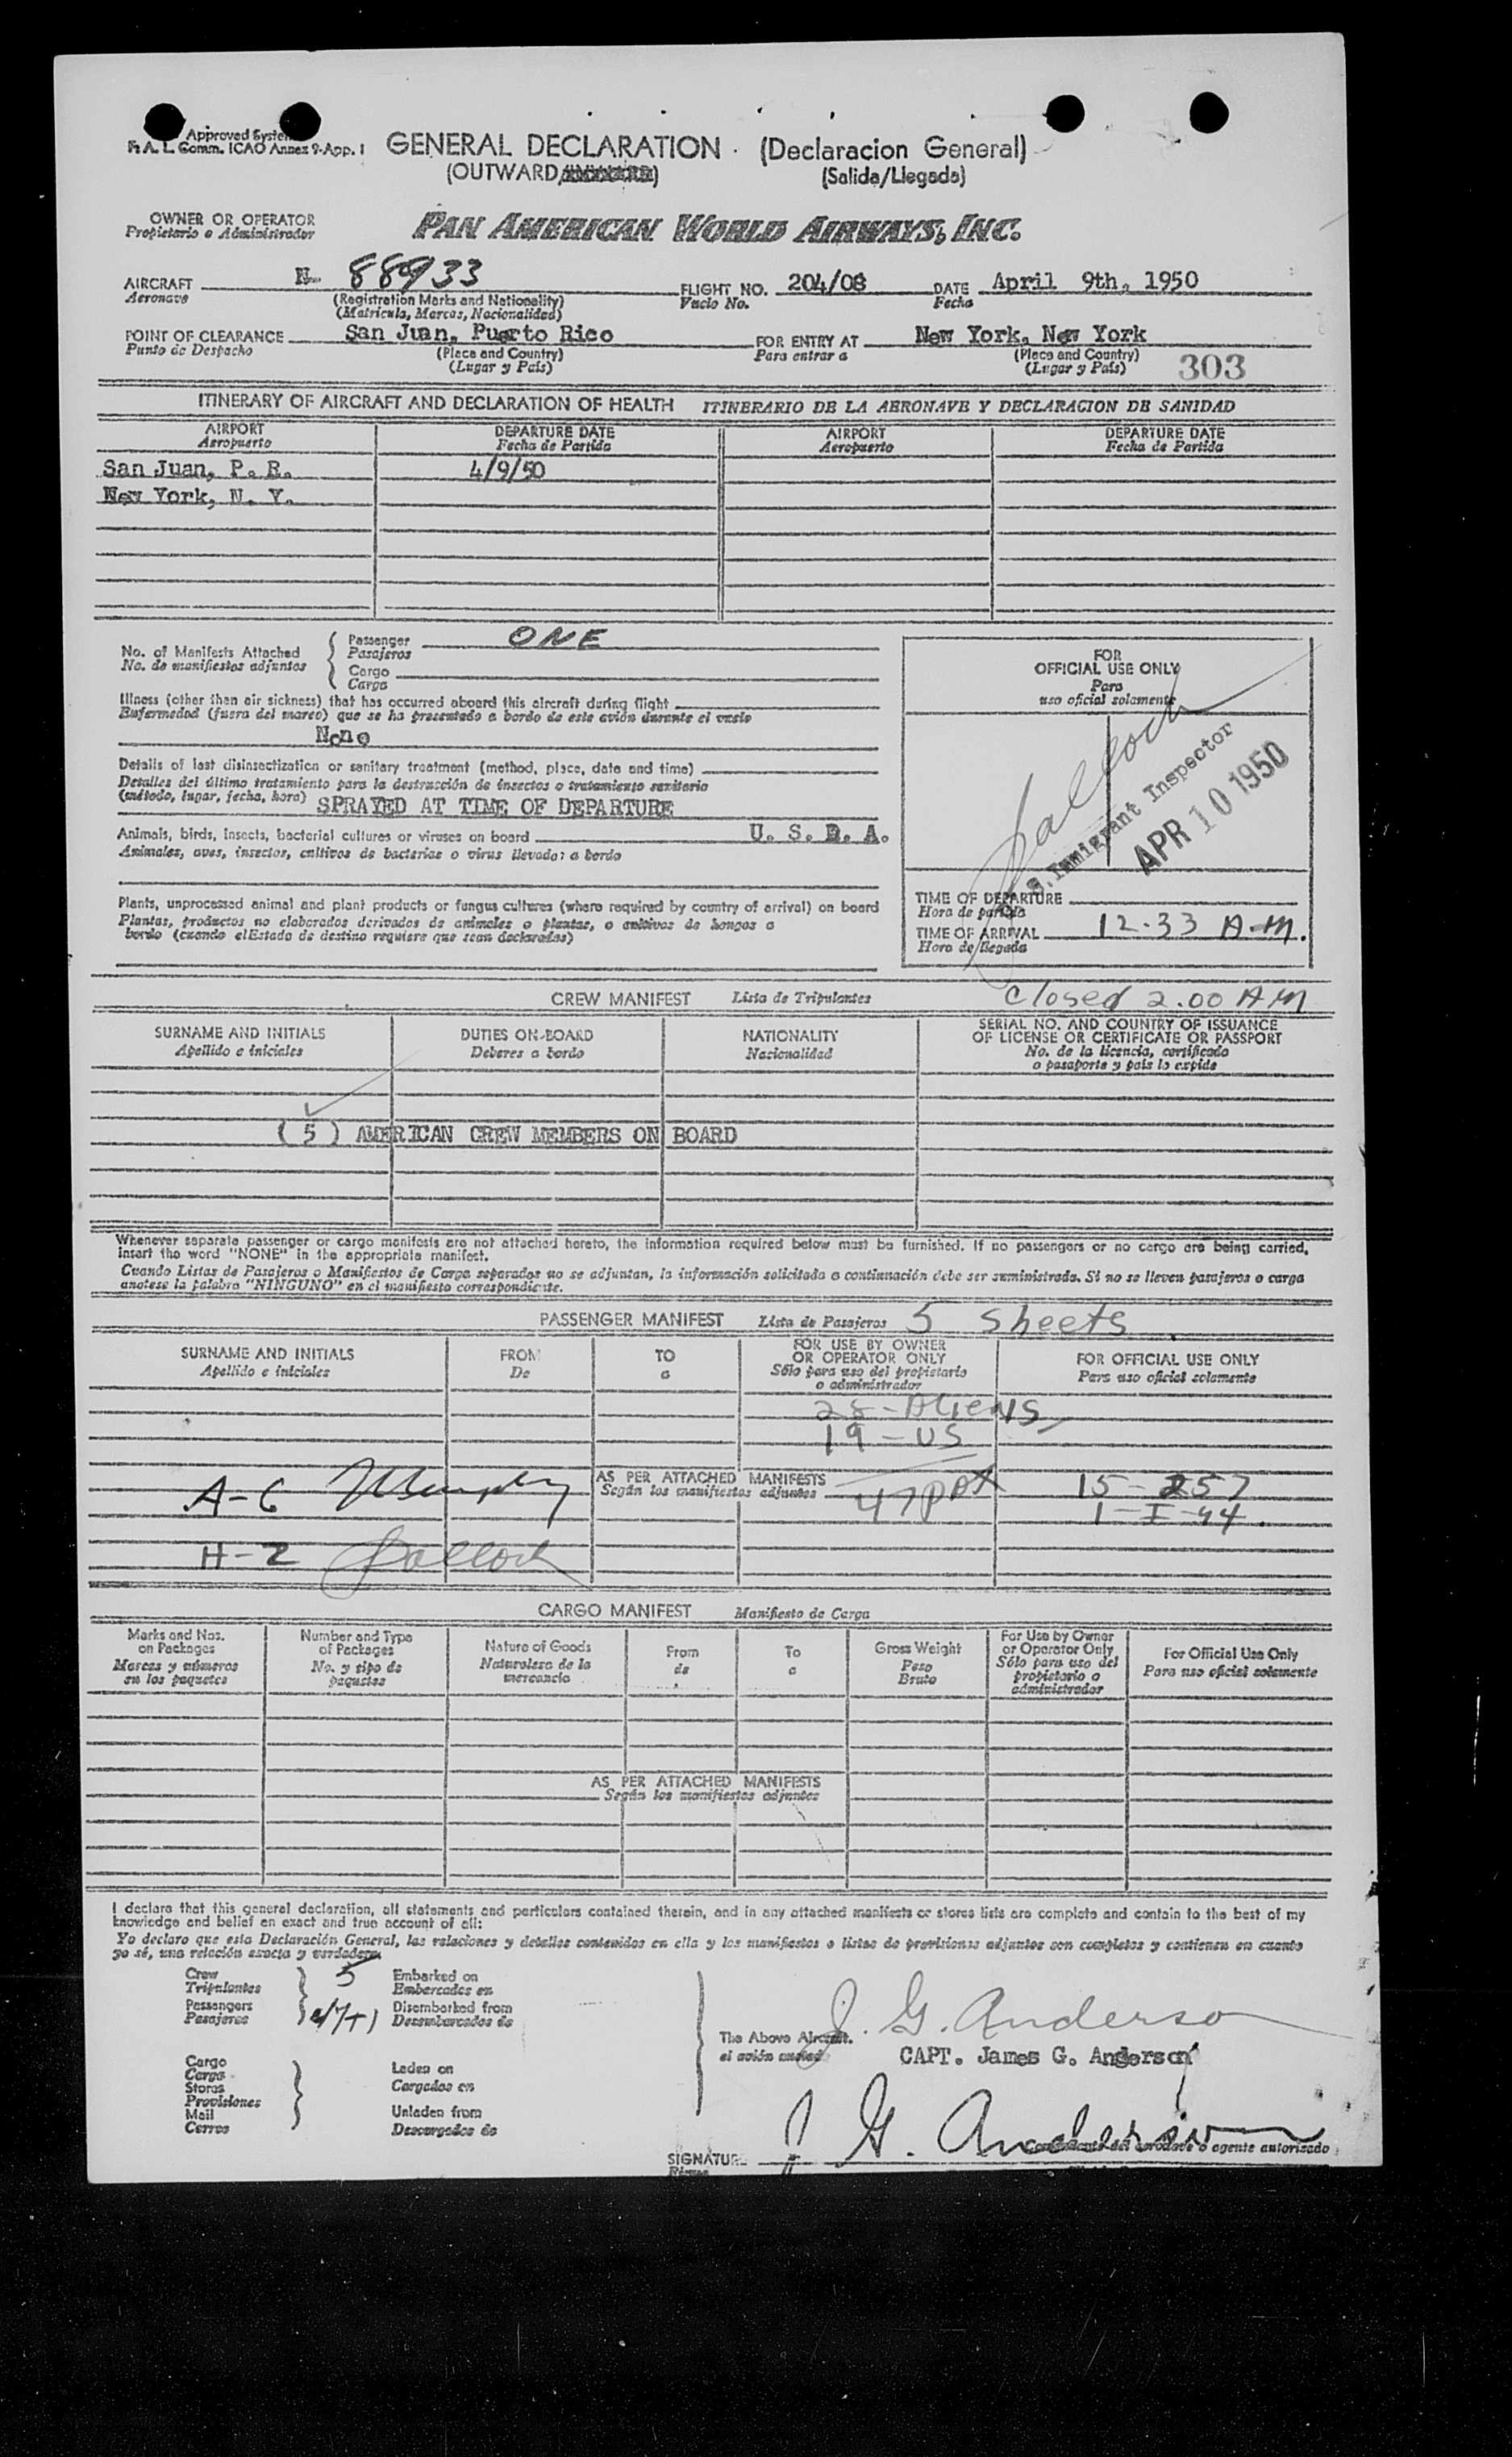 Approved System
F. A. L. Comm. ICAO Annex 9-App. 1
GENERAL DECLARATION (Declaracion General)
(OUTWARD/ (Salida/Llegada)
OWNER OR OPERATOR
Propietario o Administrador
PAN AMERICAN WORLD AIRWAYS, INC.
AIRCRAFT N- 88933 FLIGHT NO. 204/08 DATE April 9th, 1950
Aeronave (Registration Marks and Nationality) Vuelo No. Fecha
(Matricula, Marcas, Nacionalidad)
POINT OF CLEARANCE San Juan, Puerto Rico FOR ENTRY AT New York, New York
Punto de Despacho (Place and Country) Para entrar a (Place and Country)
(Lugar y País) (Lugar y País) 303
ITINERARY OF AIRCRAFT AND DECLARATION OF HEALTH ITINERARIO DE LA AERONAVE Y DECLARACION DE SANIDAD
AIRPORT DEPARTURE DATE AIRPORT DEPARTURE DATE
Aeropuerto Fecha de Partida Aeropuerto Fecha de Partida
San Juan, P. R. 4/9/50
New York, N. Y.
No. of Manifests Attached
No. de manifiestos adjuntos
Passenger ONE
Pasajeros
Cargo
Carga
Illness (other than air sickness) that has occurred aboard this aircraft during flight
Enfermedad (fuera del mareo) que se ha presentado a bordo de este avión durante el vuelo
None
Details of last disinsectization or sanitary treatment (method, place, date and time)
Detalles del último tratamiento para la destrucción de insectos o tratamiento sanitario
(método, lugar, fecha, hora) SPRAYED AT TIME OF DEPARTURE
Animals, birds, insects, bacterial cultures or viruses on board U. S. D. A.
Animales, aves, insectos, cultivos de bacterias o virus llevados a bordo
Plants, unprocessed animal and plant products or fungus cultures (where required by country of arrival) on board
Plantas, productos no elaborados derivados de animales o plantas, o cultivos de hongos a
bordo (cuando el Estado de destino requiere que sean declarados)
FOR
OFFICIAL USE ONLY
Para
uso oficial solamente
U.S. Immigrant Inspector
APR 10 1950
TIME OF DEPARTURE
Hora de partida
TIME OF ARRIVAL 12.33 A.M.
Hora de llegada
closed 2.00 AM
CREW MANIFEST Lista de Tripulantes
SURNAME AND INITIALS DUTIES ON-BOARD NATIONALITY SERIAL NO. AND COUNTRY OF ISSUANCE
Apellido e iniciales Deberes a bordo Nacionalidad OF LICENSE OR CERTIFICATE OR PASSPORT
No. de la licencia, certificado
o pasaporte y país lo expide
( 5 ) AMERICAN CREW MEMBERS ON BOARD
Whenever separate passenger or cargo manifests are not attached hereto, the information required below must be furnished. If no passengers or no cargo are being carried,
insert the word "NONE" in the appropriate manifest.
Cuando Listas de Pasajeros o Manifiestos de Carga separados no se adjuntan, la información solicitada a continuación debe ser suministrada. Si no se lleven pasajeros o carga
anotese la palabra "NINGUNO" en el manifiesto correspondiente.
PASSENGER MANIFEST Lista de Pasajeros 5 sheets
SURNAME AND INITIALS FROM TO FOR USE BY OWNER FOR OFFICIAL USE ONLY
Apellido e iniciales De a OR OPERATOR ONLY Para uso oficial solamente
Sólo para uso del propietario
o administrador
28-Aliens
19-US
AS PER ATTACHED MANIFESTS
Según los manifiestos adjuntos
A-G Murphy 47 15-257
1-I-44
H-Z
CARGO MANIFEST Manifiesto de Carga
Marks and Nos. Number and Type Nature of Goods From To Gross Weight For Use by Owner For Official Use Only
on Packages of Packages Naturaleza de la de a Peso or Operator Only Para uso oficial solamente
Marcas y números No. y tipo de mercancía Bruto Sólo para uso del
en los paquetes paquetes propietario o
administrador
AS PER ATTACHED MANIFESTS
Según los manifiestos adjuntos
I declare that this general declaration, all statements and particulars contained therein, and in any attached manifests or stores lists are complete and contain to the best of my
knowledge and belief an exact and true account of all:
Yo declaro que esta Declaración General, las relaciones y detalles contenidos en ella y los manifiestos o listas de provisiones adjuntos son completos y contienen en cuanto
yo sé, una relación exacta y verdadera.
Crew 5 Embarked on
Tripulantes Embarcados en
Passengers 47+1 Disembarked from
Pasajeros Desembarcados de
Cargo Laden on
Carga Cargados en
Stores
Provisiones
Mail Unladen from
Correo Descargados de
J. G. Anderson
The Above Aircraft.
el avión
CAPT. James G. Anderson
J G. Anderson
SIGNATURE
Firma
agente autorizado